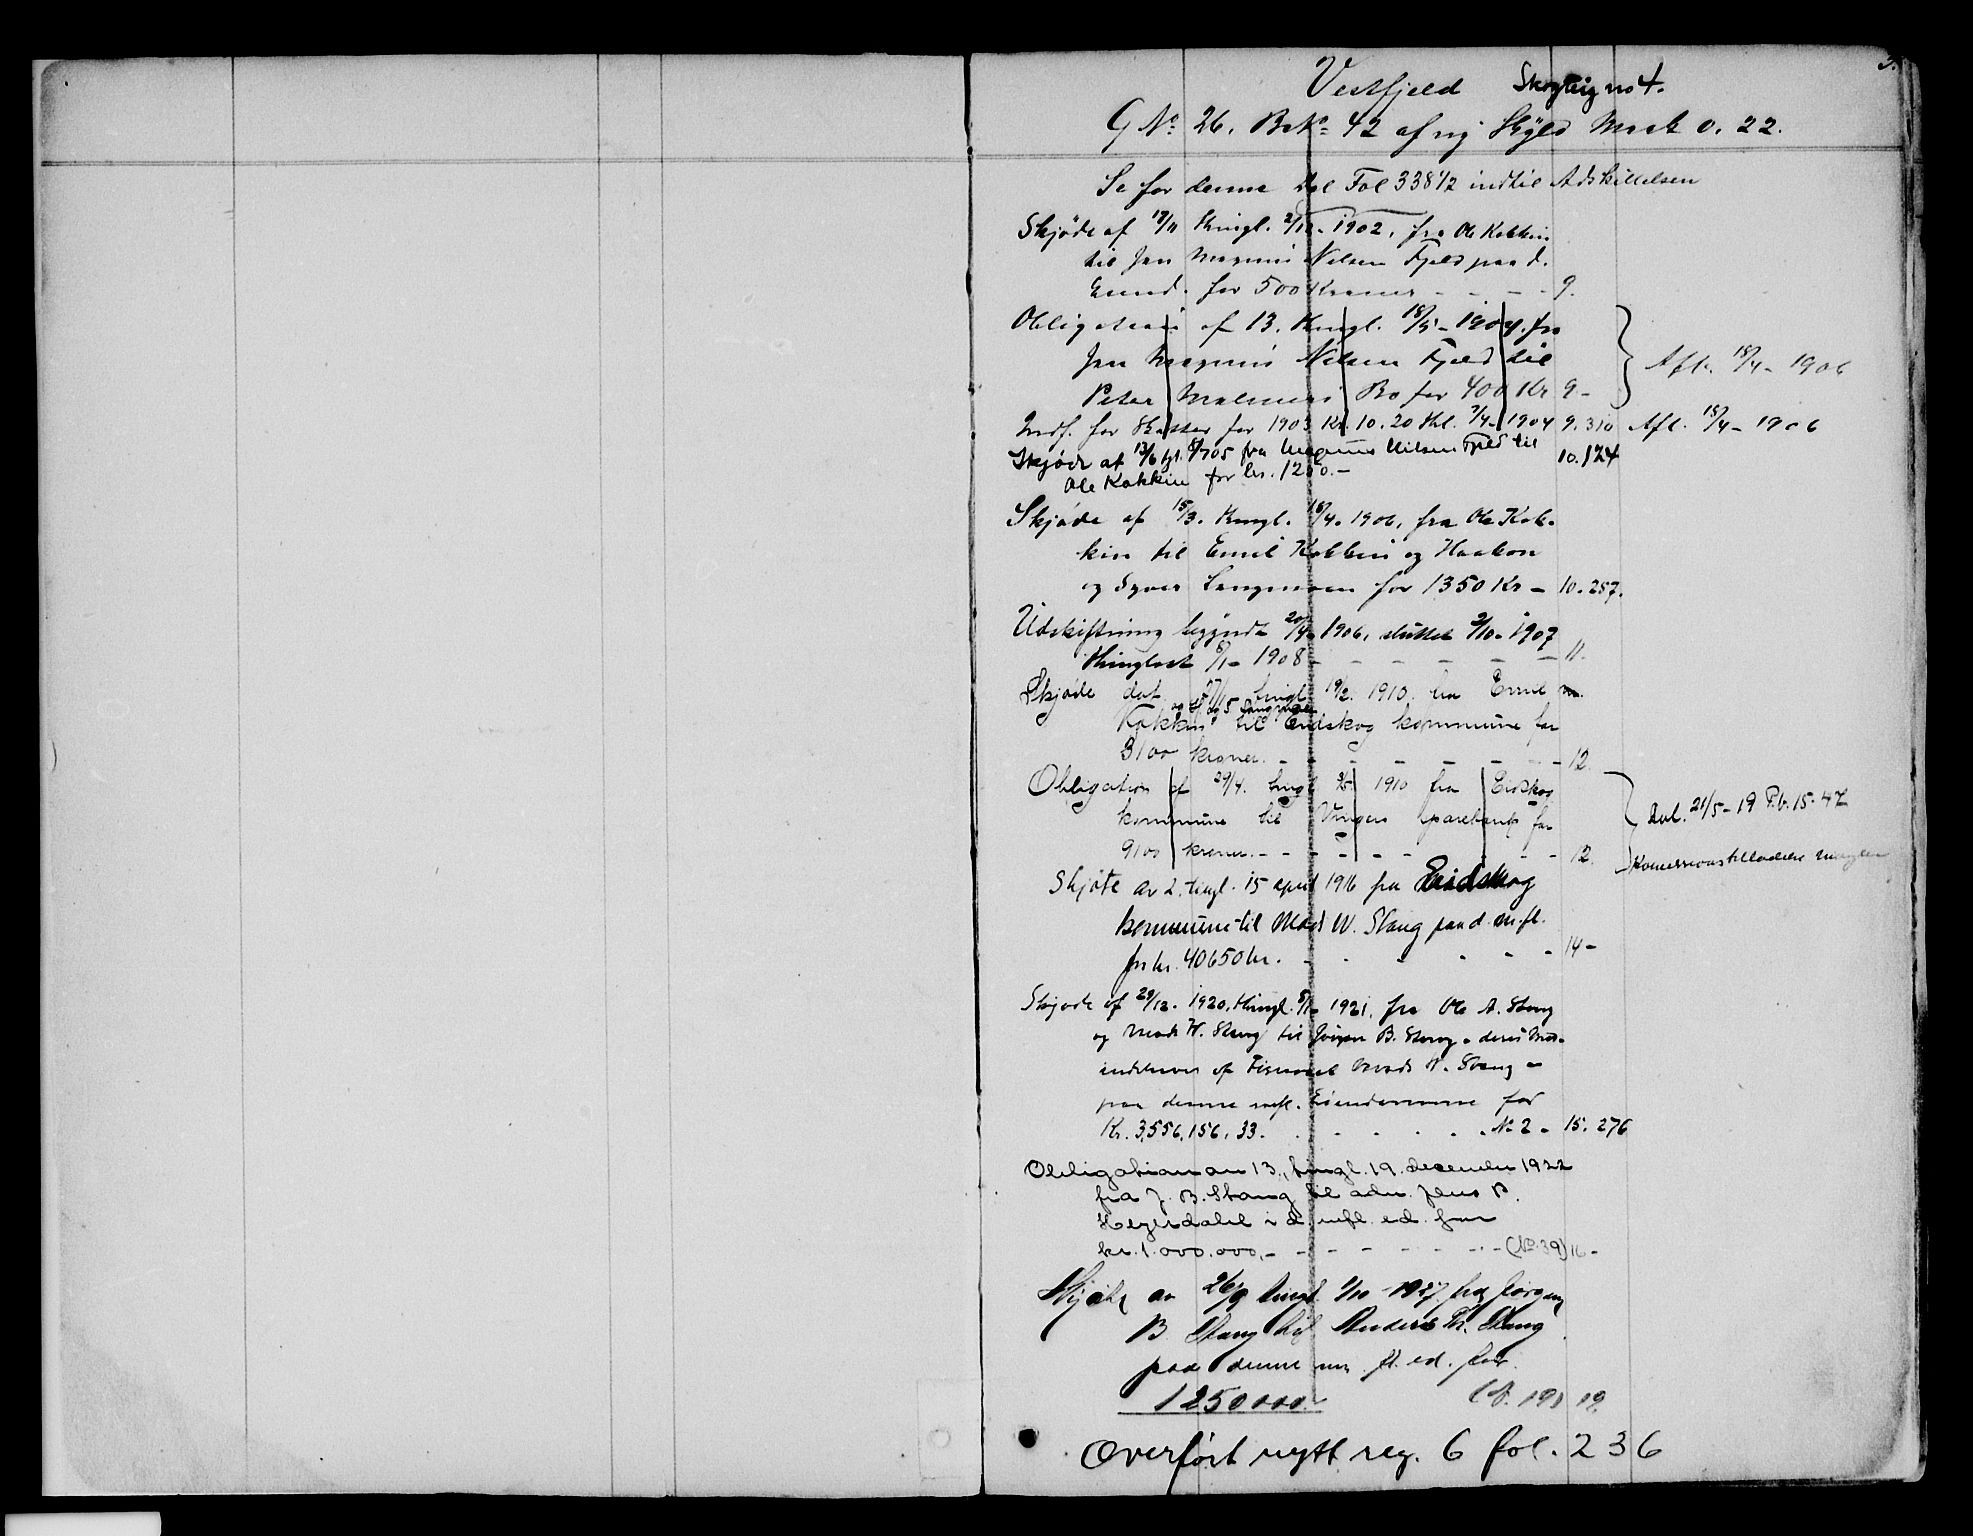 3.
Vestfjeld Skogteig no 4.
G No 26. Br No 42 af ny Skyld Mark 0. 22.
Se for denne Del Fol 338 1/2 indtil Adskillelsen
Skjøde af 17/11 thingl. 2/12 - 1902, fra Ole Kokkin
til Jan Magnus Nilsen Fjeld paa d.
Eiend. for 500 Kroner - - - - 9.
Obligation af 13. thingl. 18/5 - 1904. fra
Jan Magnus Nilsen Fjeld til
Peter Malmers Bo for 400 Kr 9 -
Afl. 18/4 - 1906
Indf. for Skatter for 1903 Kr. 10.20 thl. 7/4 - 1904 9. 310 Afl. 18/4 - 1906
Skjøde af 13/6 tgl. 05 fra Magnus Nilsen Fjeld til 10. 124
Ole Kokkin for kr. 1250. -
Skjøde af 15/3. thingl. 18/4. 1906, fra Ole Kok-
kin til Emil Kokkin og Haakon
og Syver Langmoen for 1350 Kr - 10. 257.
Udskiftning begyndt 20/4 1906, sluttet 2/10 - 1907
thinglæst 8/1 - 1908 - - - - - 11.
Skjøde dat. 27/1 tingl. 19/2. 1910. fra Emil
og H og S Langmoen
Kokkin til Eidskog kommune for
3100 kroner. - - - - - - 12.
Obligation af 29/4. tingl 1910 fra Eidskog
kommune til Vinger sparebank for
9100 kroner. - - - - - - 12.
Avl. 21/5 - 19 P.b. 15 - 47
Koncessionstilladelse mangler
Skjøte av 2. tingl. 15 april 1916 fra Eidskog
kommune til Mads W. Stang paa d. m.fl.
for kr. 40650 kr. - - - - - 14 -
Skjøde af 29/12. 1920, thingl. 5/1 - 1921, fra Ole A. Stang
og Mads W. Stang til Jørgen B. Stang - deres Med-
indehaver af Firmaet Mads W. Stang -
paa denne mfl. Eiendomme for
Kr. 3,556,156, 33. - - - - - No 2 - 15. 276
Obligation av 13., tingl. 19. desember 1922
fra J. B. Stang til adv. Jens P.
Heyerdahl i d. mfl. ed. for
kr. 1.000.000, - - - - - - (No. 39) 16 -
Skjøte av 26/9 tingl. 1/10 - 1927 fra Jørgen
B. Stang til Anders Th. Stang
paa denne m. fl. ed. for
1250000.- (N. 19) 19
Overført nytt reg. 6 fol. 236